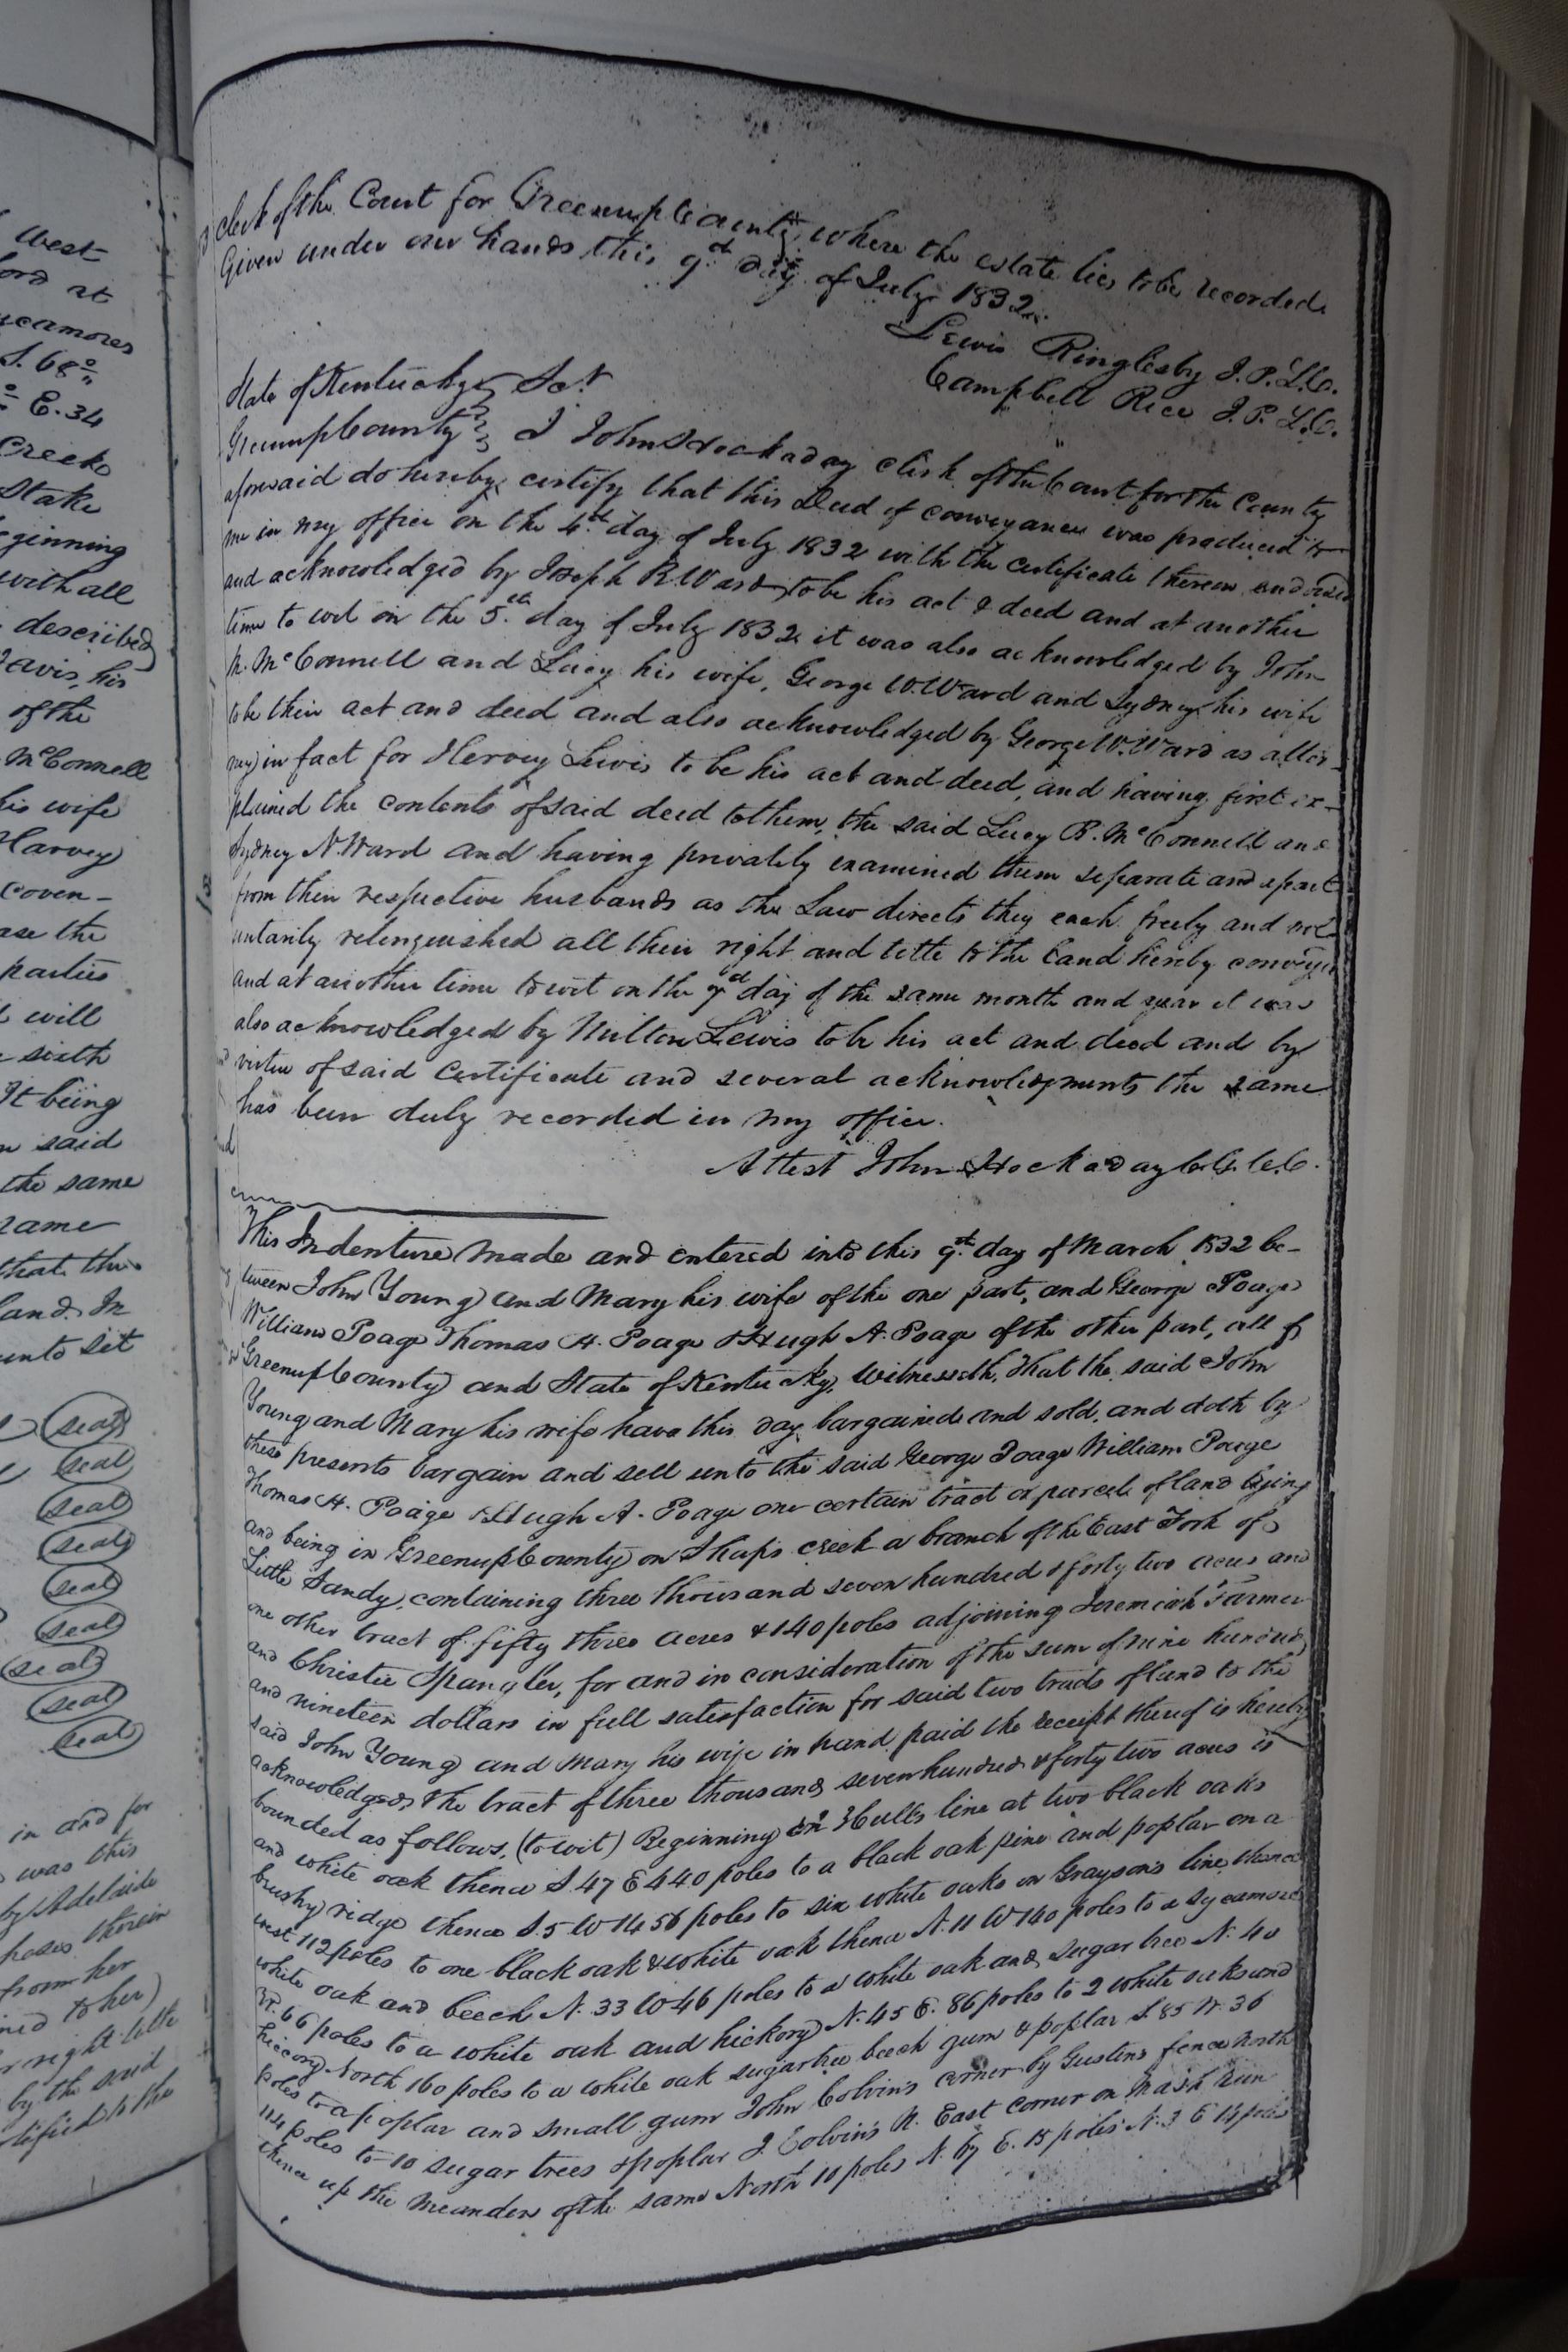 West
ord at
ycamores
S. 68°
° E. 34
Creek
Stake
ginning
with all
described
avis, his
of the
McConnell
his wife
Harvey
Coven-
ase the
parties
will
sixth
It being
n said
the same
same
that the
land. In
unto set
seal
seal
seal
seal
seal
seal
seal
seal
seal
in and for
was this
by Adelaide
poses therein
from her
ned to her)
r right title
by the said
to the
Clerk of the Court for Greenup County, where the estate lies to be recorded
Given under our hands this 9th day of July 1832.
Lewis Ringlesby J.P.L.C.
Campbell Rice J.P.L.C.
State of Kentucky Sct
Greenup County I John Hockaday clerk of the Court for the County
aforesaid do hereby certify that this Deed of conveyance was produced to
me in my office on the 4th day of July 1832 with the certificate thereon endorsed
and acknowledged by Joseph R. Ward to be his act & deed and at another
time to wit on the 5th day of July 1832 it was also acknowledged by John
M. McConnell and Lucy his wife, George W. Ward and Sydney his wife
to be their act and deed and also acknowledged by George W. Ward as attor-
ney in fact for Hervey Lewis to be his act and deed, and having first ex-
plained the contents of said deed to them, the said Lucy R. McConnell and
Sydney N. Ward and having privately examined them separate and apart
from their respective husbands as the Law directs they each freely and vol-
untarily relinquished all their right and title to the land hereby conveyed
and at another time to wit on the day of the same month and year it was
also acknowledged by Milton Lewis to be his act and deed and by
virtue of said Certificate and several acknowledgments the same
has been duly recorded in my office.
Attest John Hockaday C.G.C.C.
This Indenture made and entered into this 9th day of March 1832 be-
tween John Young and Mary his wife of the one part, and George Poage
William Poage Thomas H. Poage & Hugh A. Poage of the other part, all of
Greenup County and State of Kentucky, Witnesseth, That the said John
Young and Mary his wife have this day bargained and sold, and doth by
these presents bargain and sell unto the said George Poage William Poage
Thomas H. Poage & Hugh A. Poage one certain tract or parcel of land lying
and being in Greenup County on Shaps creek a branch of the East Fork of
Little Sandy, containing three thousand seven hundred & forty two acres and
one other tract of fifty three acres & 140 poles adjoining Jeremiah Farmer
and Christie Spangler, for and in consideration of the sum of nine hundred
and nineteen dollars in full satisfaction for said two tracts of land to the
said John Young and Mary his wife in hand paid the receipt thereof is hereby
acknowledged, The tract of three thousand seven hundred & forty two acres is
bounded as follows, (to wit) Beginning in Hulls line at two black oaks
and white oak thence S. 47 E 440 poles to a black oak pine and poplar on a
brushy ridge thence S. 5 W 1456 poles to six white oaks in Graysons line, thence
west 112 poles to one black oak & white oak thence N. 11 W 140 poles to a sycamore
white oak and beech N. 33 W 46 poles to a white oak and sugar tree N. 40
W. 66 poles to a white oak and hickory N. 45 E. 86 poles to 2 white oaks and
hickory North 160 poles to a white oak sugartree beech gum & poplar S. 85 W. 36
poles to a poplar and small gum John Colvin's corner by Gustins fence North
114 poles to 10 sugar trees & poplar J. Colvin's N. East corner on Mash run
thence up the meanders of the same North 10 poles N. 67 E. 15 poles N. 3 E 14 poles